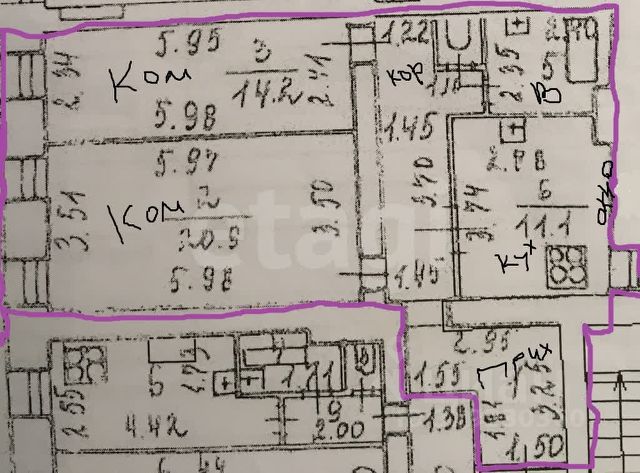 5.95
3
14.2
2.34
2.41
Ком
5.98
1.22
кор
1.16
2.35
5
В
1.45
5.97
2
20.9
3.51
3.50
Ком
5.98
3.70
3.74
2.78
6
11.1
окно
Кух
1.45
etagi
2.95
1.55
1
3.25
1.81
1.50
1.38
5
2.55
4.42
1.71
9
2.00
6.44